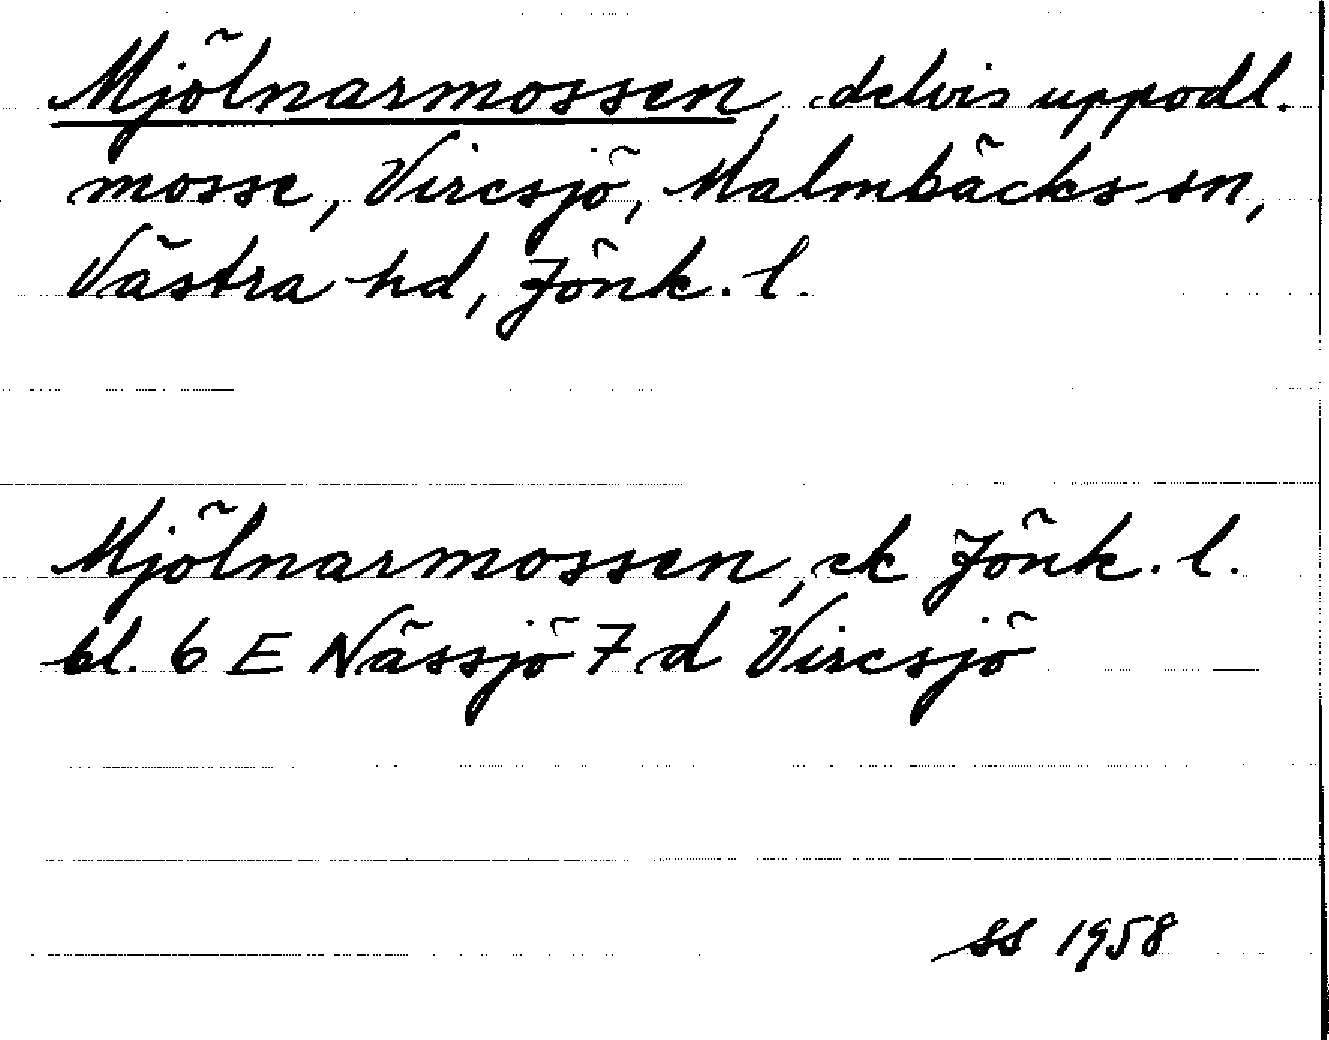 Mjölnarmossen, delvis uppodl.
mosse, Viresjö, Malmbäcks sn,
Västra hd, Jönk. l.
Mjölnarmossen, ek Jönk. l.
bl. 6 E Nässjö 7 d Viresjö
SS 1958